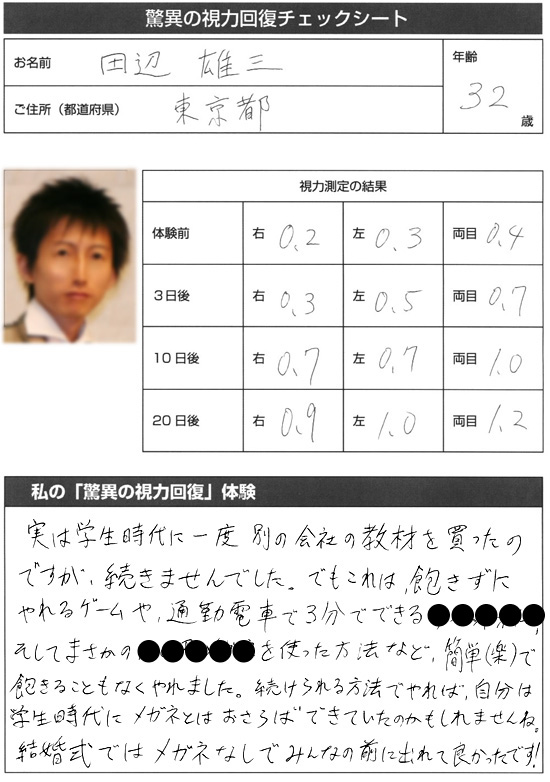 驚異の視力回復チェックシート
お名前 田辺 雄三
年齢 32 歳
ご住所（都道府県） 東京都
視力測定の結果
体験前 右 0.2 左 0.3 両目 0.4
3日後 右 0.3 左 0.5 両目 0.7
10日後 右 0.7 左 0.7 両目 1.0
20日後 右 0.9 左 1.0 両目 1.2
私の「驚異の視力回復」体験
実は学生時代に一度 別の会社の教材を買ったの
ですが、続きませんでした。でもこれは、飽きずに
やれるゲームや、通勤電車で3分でできる●●●●●,
そしてまさかの●●●●●を使った方法など、簡単(楽)で
飽きることもなくやれました。続けられる方法でやれば、自分は
学生時代にメガネとはおさらばできていたのかもしれませんね。
結婚式ではメガネなしでみんなの前に出れて良かったです!